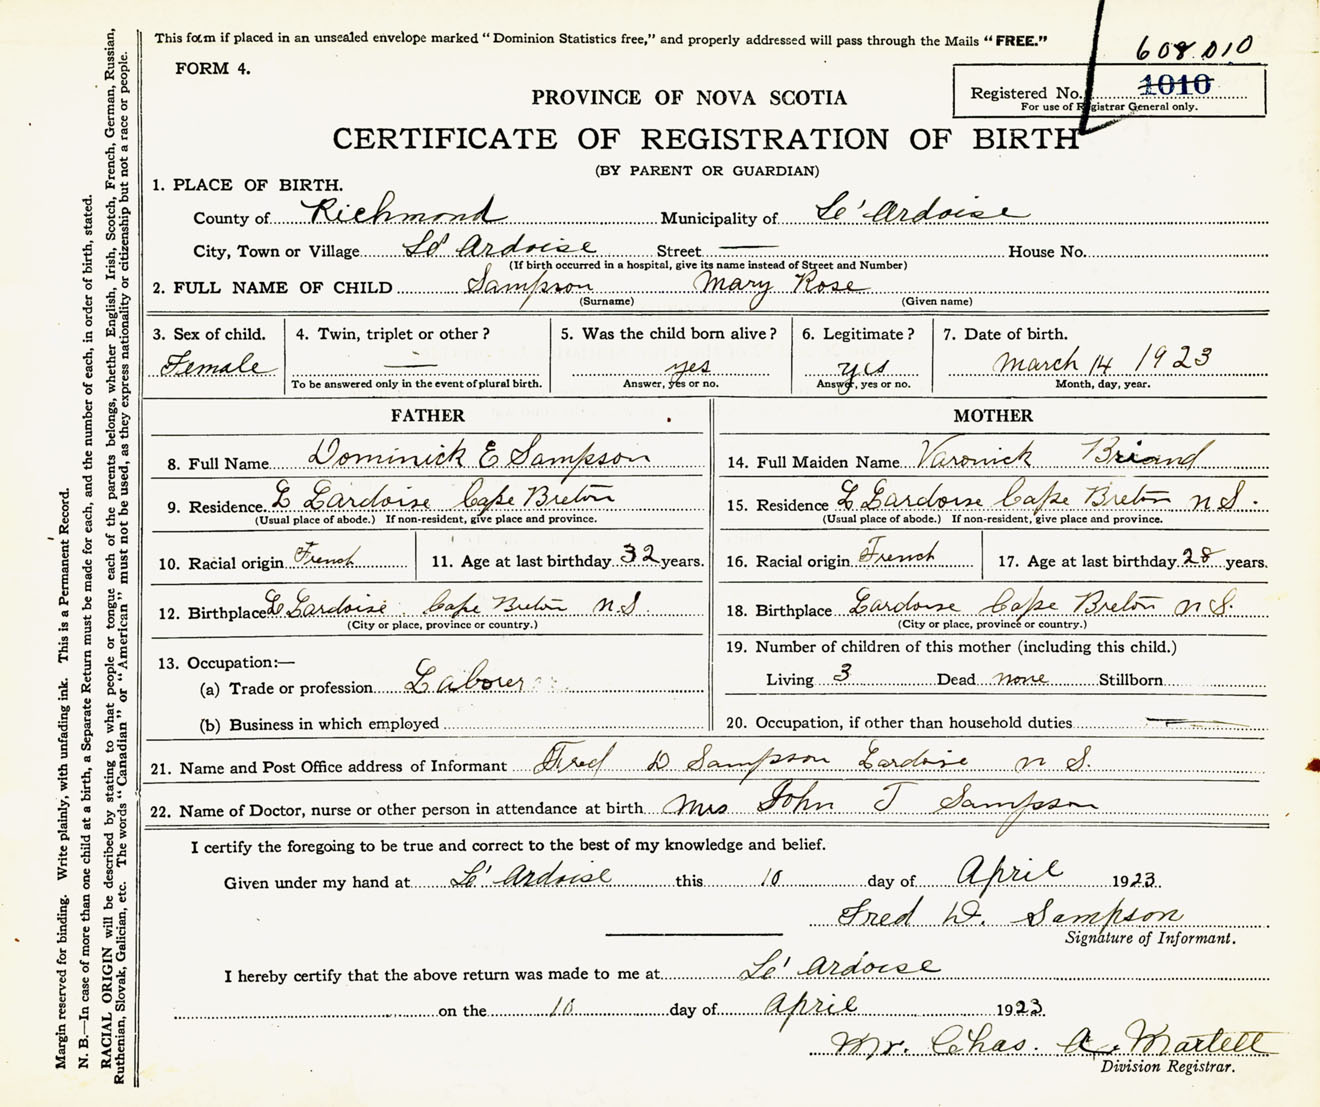 This form if placed in an unsealed envelope marked "Dominion Statistics free," and properly addressed will pass through the Mails "FREE."
608010
FORM 4.
Registered No. 1010
For use of Registrar General only.
PROVINCE OF NOVA SCOTIA
CERTIFICATE OF REGISTRATION OF BIRTH
(BY PARENT OR GUARDIAN)
1. PLACE OF BIRTH.
County of Richmond Municipality of Le' Ardoise
City, Town or Village Le' Ardoise Street — House No.
(If birth occurred in a hospital, give its name instead of Street and Number)
2. FULL NAME OF CHILD Sampson Mary Rose
(Surname) (Given name)
3. Sex of child. 4. Twin, triplet or other? 5. Was the child born alive? 6. Legitimate? 7. Date of birth.
Female — yes yes March 14 1923
To be answered only in the event of plural birth. Answer, yes or no. Answer, yes or no. Month, day, year.
FATHER MOTHER
8. Full Name Dominick E Sampson 14. Full Maiden Name Varonick Briand
9. Residence. L Lardoise Cape Breton 15. Residence L Lardoise Cape Breton N S.
(Usual place of abode.) If non-resident, give place and province. (Usual place of abode.) If non-resident, give place and province.
10. Racial origin French 11. Age at last birthday 32 years. 16. Racial origin French 17. Age at last birthday 28 years.
12. Birthplace L Lardoise Cape Breton N S. 18. Birthplace Lardoise Cape Breton N S.
(City or place, province or country.) (City or place, province or country.)
13. Occupation:— 19. Number of children of this mother (including this child.)
(a) Trade or profession Laborer Living 3 Dead none Stillborn
(b) Business in which employed 20. Occupation, if other than household duties —
21. Name and Post Office address of Informant Fred D Sampson Lardoise N S.
22. Name of Doctor, nurse or other person in attendance at birth Mrs John T Sampson
I certify the foregoing to be true and correct to the best of my knowledge and belief.
Given under my hand at Le' Ardoise this 10 day of April 1923.
Fred D. Sampson
Signature of Informant.
I hereby certify that the above return was made to me at Le' Ardoise
on the 10 day of April 1923.
Mr. Chas. A. Martell
Division Registrar.
Margin reserved for binding. Write plainly, with unfading ink. This is a Permanent Record.
N. B.—In case of more than one child at a birth, a Separate Return must be made for each, and the number of each, in order of birth, stated.
RACIAL ORIGIN will be described by stating to what people or tongue each of the parents belongs, whether English, Irish, Scotch, French, German, Russian,
Ruthenian, Slovak, Galician, etc. The words "Canadian" or "American" must not be used, as they express nationality or citizenship but not a race or people.